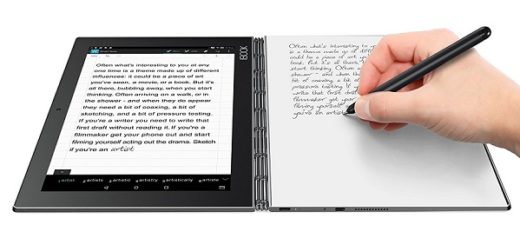 BOOX
Often what's interesting to you at any
one time is a theme made up of different
influences: it could be a piece of art
you've seen, a movie, or a book. But it's
all there, bubbling away, when you start
thinking. Often arriving on a walk, or in
the shower - and when they do appear
they need a bit of coaxing, a bit of
sketching, and a bit of pressure testing.
If you're a writer you need to write that
first draft without reading it. If you're a
filmmaker get your phone out and start
filming yourself acting out the drama. Sketch
if you're an artist
artist artists artistic artistry artistically artiste
Often what's interesting to you
one time is a theme made up
could be a piece of
But it's all
start thinking. Often
shower - and when the
of coaxing, a bit of
pressure testing. If
write that first draft
filmmaker get your
filming yourself
you're an artist